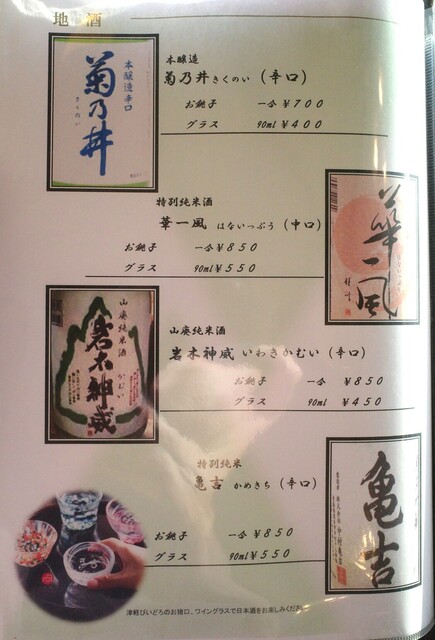 地酒
本醸造
菊乃井 きくのい (辛口)
お銚子 一合 ¥700
グラス 90ml ¥400
菊乃井
本醸造辛口
きくのい
特別純米酒
華一風 はないっぷう (中口)
お銚子 一合 ¥850
グラス 90ml ¥550
華一風
山廃純米酒
岩木神威 いわきかむい (辛口)
お銚子 一合 ¥850
グラス 90ml ¥450
山廃純米酒
岩木神威
かむい
特別純米
亀吉 かめきち (辛口)
お銚子 一合 ¥850
グラス 90ml ¥550
亀吉
津軽びいどろのお猪口、ワイングラスで日本酒をお楽しみください